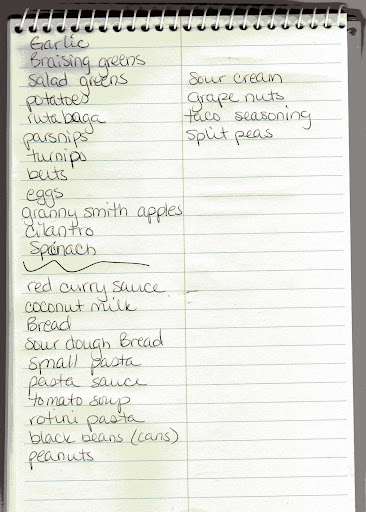 Garlic
Braising greens
salad greens
potatoes
rutabaga
parsnips
turnips
beets
eggs
granny smith apples
cilantro
Spinach
red curry sauce
coconut milk
Bread
sour dough Bread
small pasta
pasta sauce
tomato soup
rotini pasta
black beans (cans)
peanuts
sour cream
grape nuts
taco seasoning
split peas